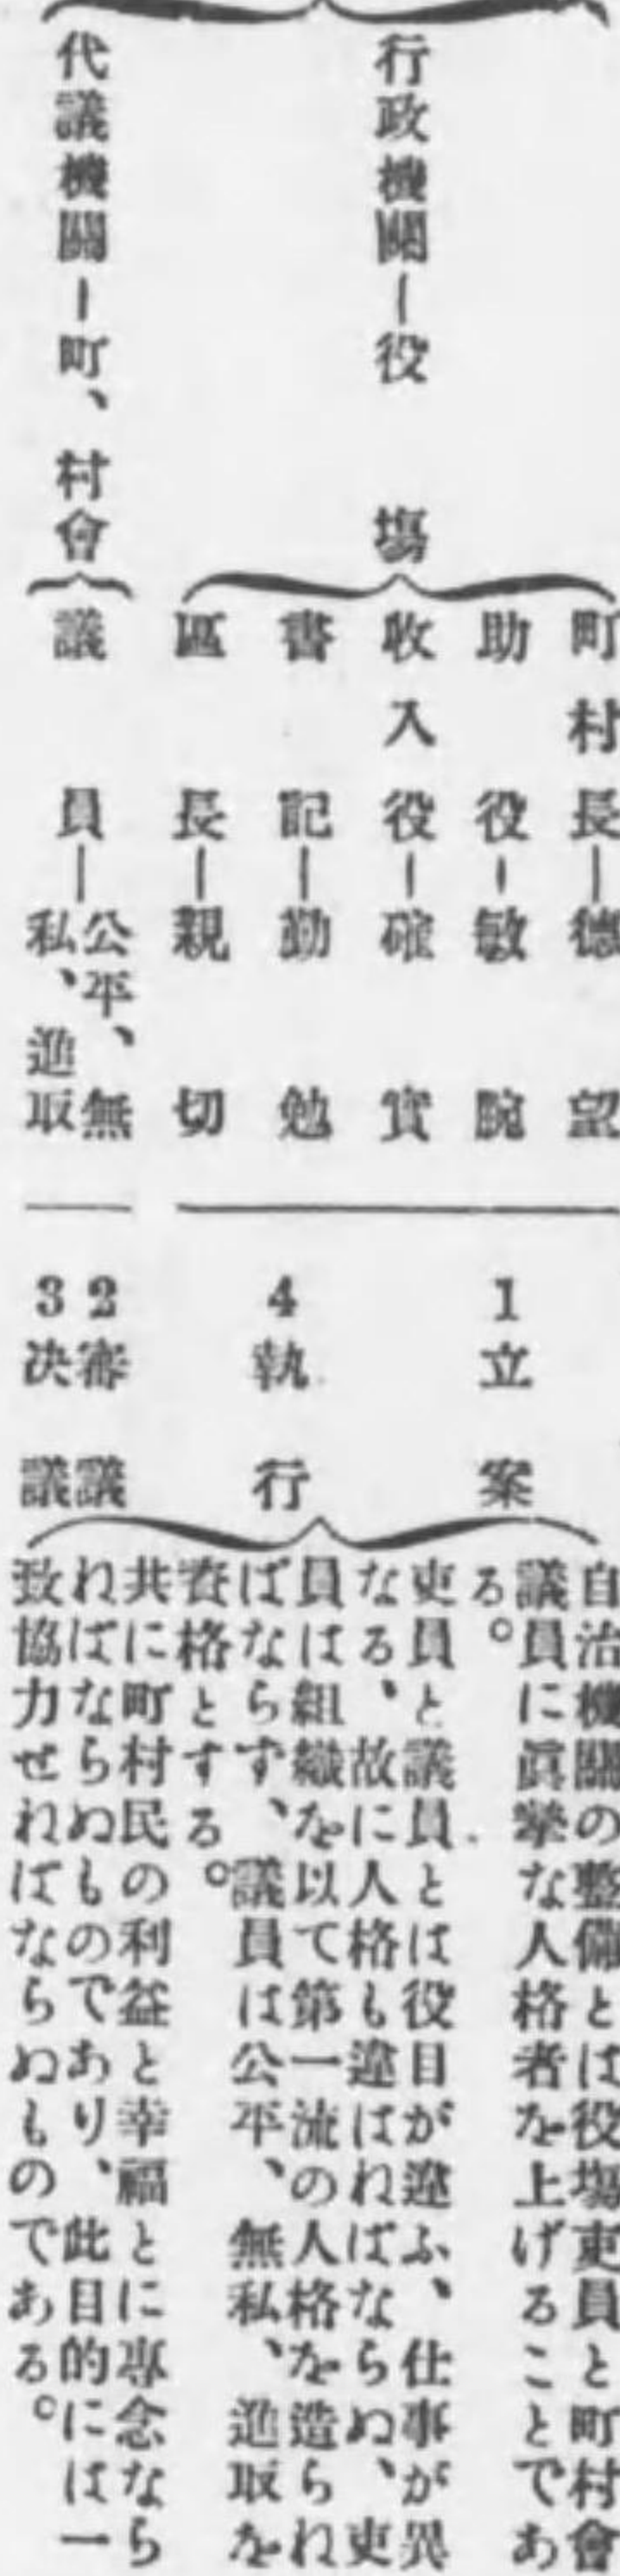 行政機關―役場
町村長―德望
助役―敏腕
收入役―確實
書記―勤勉
區長―親切
1立案
4執行
代議機關―町、村會
議員―公平、無
私、進取
2審議
3決議
自治機關の整備とは役塲吏員と町村會
議員に眞摯な人格者を上げることであ
る。
吏員と議員とは役目が違ふ、仕事が異
なる、故に人格も違はねばならぬ、吏
員は組織を以て第一流の人格を造られ
ばならず、議員は公平、無私、進取を
資格とする。
共に町村民の利益と幸福とに專念なら
ねばならぬものであり、此目的には一
致協力せねばならぬものである。